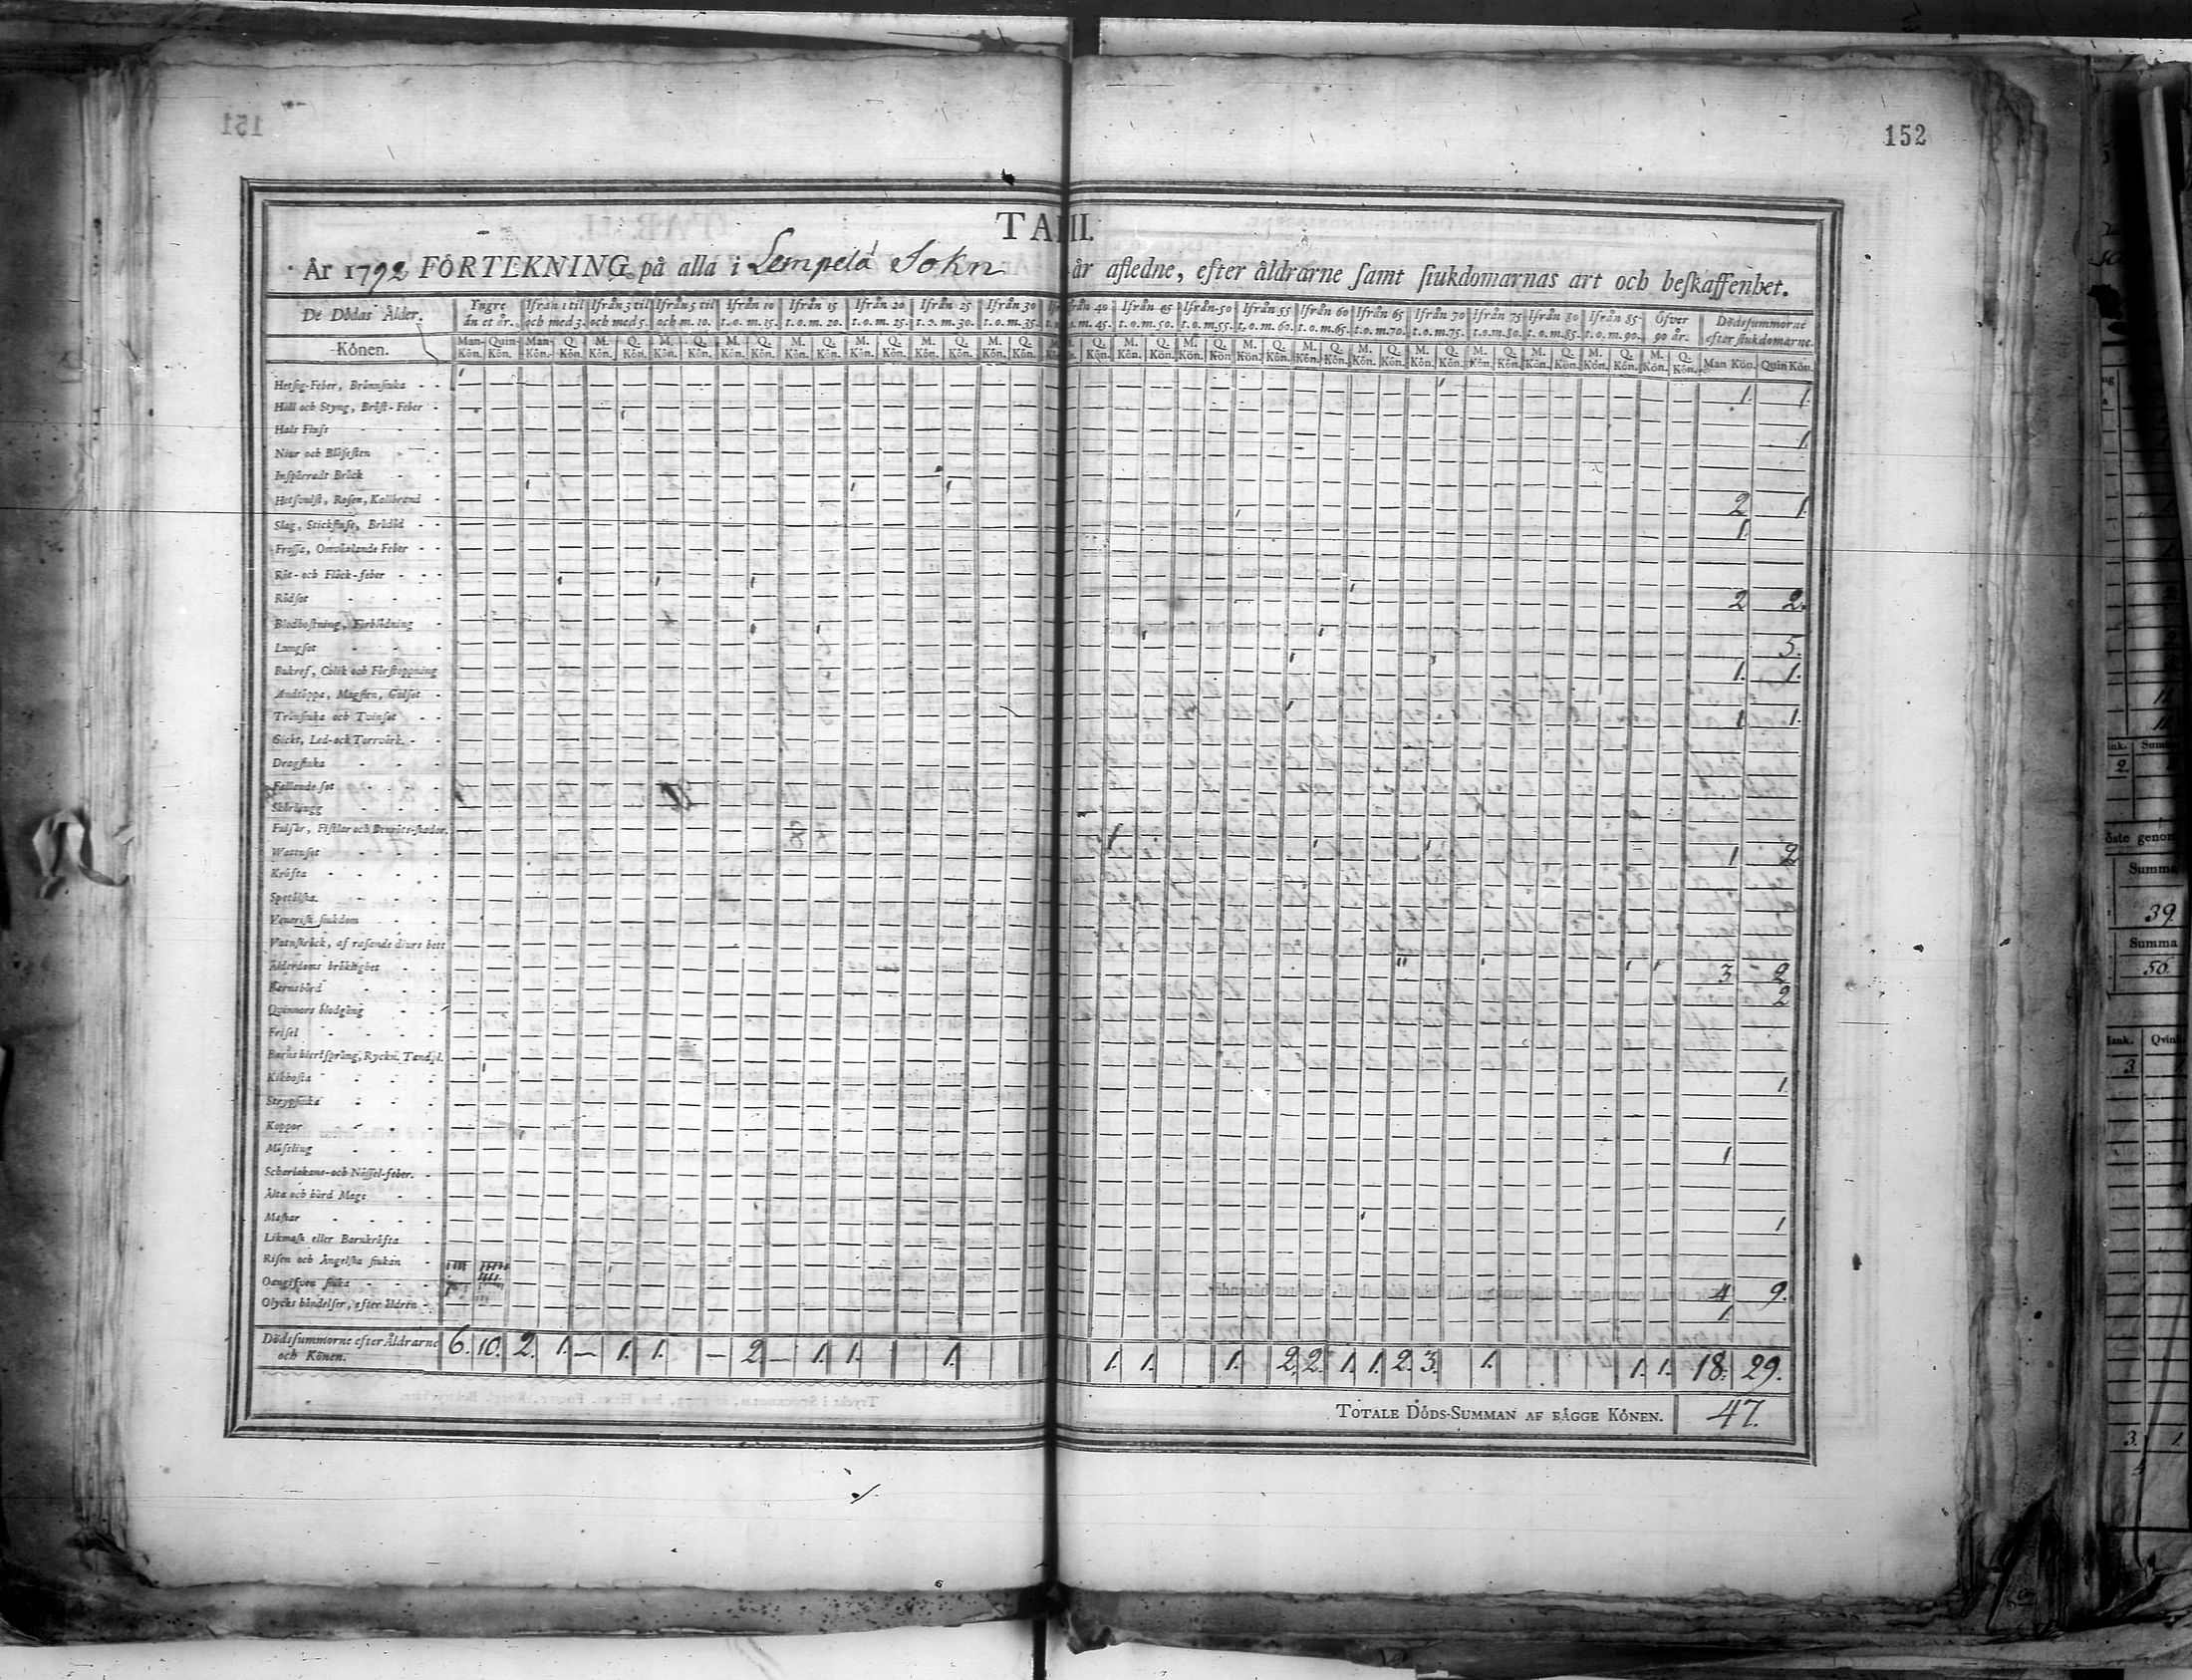 152
TAB. II.
År 1792 FÖRTEKNING på alla i Lempelä Sokn i år afledne, efter åldrarne samt siukdomarnas art och beskaffenhet.
De Dödas Ålder. Yngre än et år. Ifrån 1 til och med 3. Ifrån 3 til och med 5. Ifrån 5 til och m. 10. Ifrån 10 t.o.m. 15. Ifrån 15 t.o.m. 20. Ifrån 20 t.o.m. 25. Ifrån 25 t.o.m. 30. Ifrån 30 t.o.m. 35. från 40 t.o.m. 45. Ifrån 45 t.o.m. 50. Ifrån 50 t.o.m. 55. Ifrån 55 t.o.m. 60. Ifrån 60 t.o.m. 65. Ifrån 65 t.o.m. 70. Ifrån 70 t.o.m. 75. Ifrån 75 t.o.m. 80. Ifrån 80 t.o.m. 85. Ifrån 85 t.o.m. 90. Öfver 90 år. Dödssummorne efter siukdomarne.
Könen. Man Kön. Quin Kön.
Hetsig-Feber, Brännsiuka 1. 1.
Håll och Styng, Bröst-Feber
Hals Fluss 1.
Niur och Blåsesten
Inspärradt Bråck
Hetsvulst, Rosen, Kallbrand 2 1.
Slag, Stickfluss, Brådöd 1.
Frossa, Omväxlande Feber
Röt- och Fläck-feber
Rödsot 2 2.
Blodhostning, Förblödning
Lungsot 5.
Bukref, Colik och Förstoppning 1. 1.
Andtäppa, Magsten, Gulsot
Trånsiuka och Tvinsot 1 1.
Gickt, Led- och Torrvärk
Dragsiuka
Fallande sot
Skörbjugg
Fulsår, Fistlar och Benröts-skador
Wattusot 1 2
Kräfta
Spetälska
Venerisk siukdom
Vatuskräck, af rasande diurs bett
Ålderdoms bräklighet 3 2
Barnsbörd 2
Quinnors blodgång
Frisel
Barns hiertsprång, Ryckn. Tandsl.
Kikhosta 1.
Strypsiuka
Koppor
Mässling 1
Scharlakans- och Nässel-feber
Älta och hård Mage
Maskar
Likmask eller Barnkräfta 1
Risen och Ängelska siukan
Oangifven siuka 4 9.
Olycks händelser, efter åldren 1.
Dödssummorne efter Åldrarne och Könen. 6. 10. 2. 1. — 1. 1. — 2 — 1. 1. 1. 1. 1. 1. 2. 2. 1. 1. 2. 3. 1. 1. 1. 18. 29.
TOTALE DÖDS-SUMMAN AF BÅGGE KÖNEN. 47.